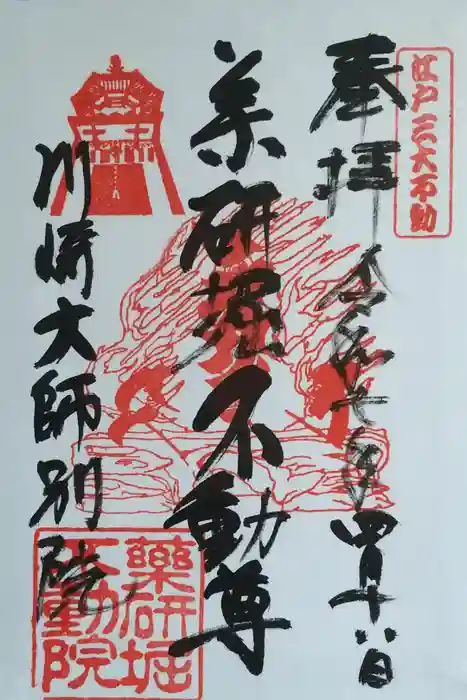 江戸三大不動
奉拝 令和七年四月十八日
薬研堀不動尊
川崎大師別院
薬研堀
不動院